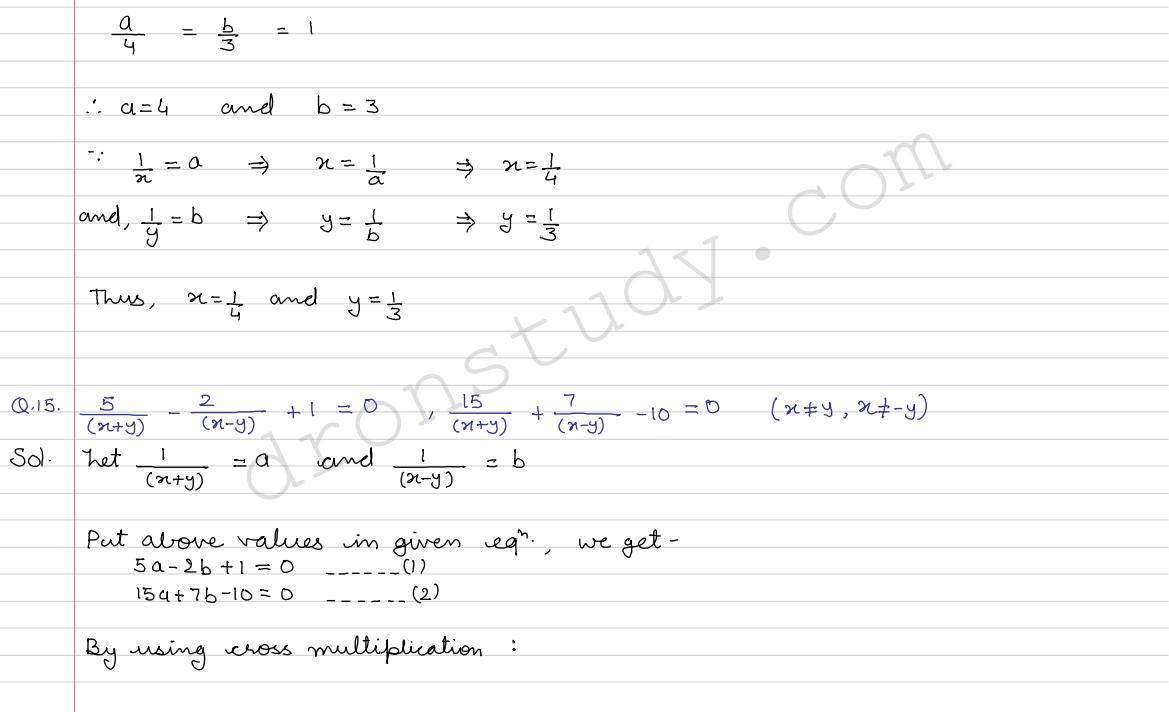 a/4 = b/3 = 1
∴ a=4 and b = 3
∵ 1/x = a ⇒ x = 1/a ⇒ x = 1/4
and, 1/y = b ⇒ y = 1/b ⇒ y = 1/3
Thus, x = 1/4 and y = 1/3
Q.15. 5/(x+y) - 2/(x-y) + 1 = 0 , 15/(x+y) + 7/(x-y) - 10 = 0 (x≠y, x≠-y)
Sol. Let 1/(x+y) = a and 1/(x-y) = b
Put above values in given eqⁿ., we get -
5a - 2b + 1 = 0 ------(1)
15a + 7b - 10 = 0 ------(2)
By using cross multiplication :
dronstudy.com